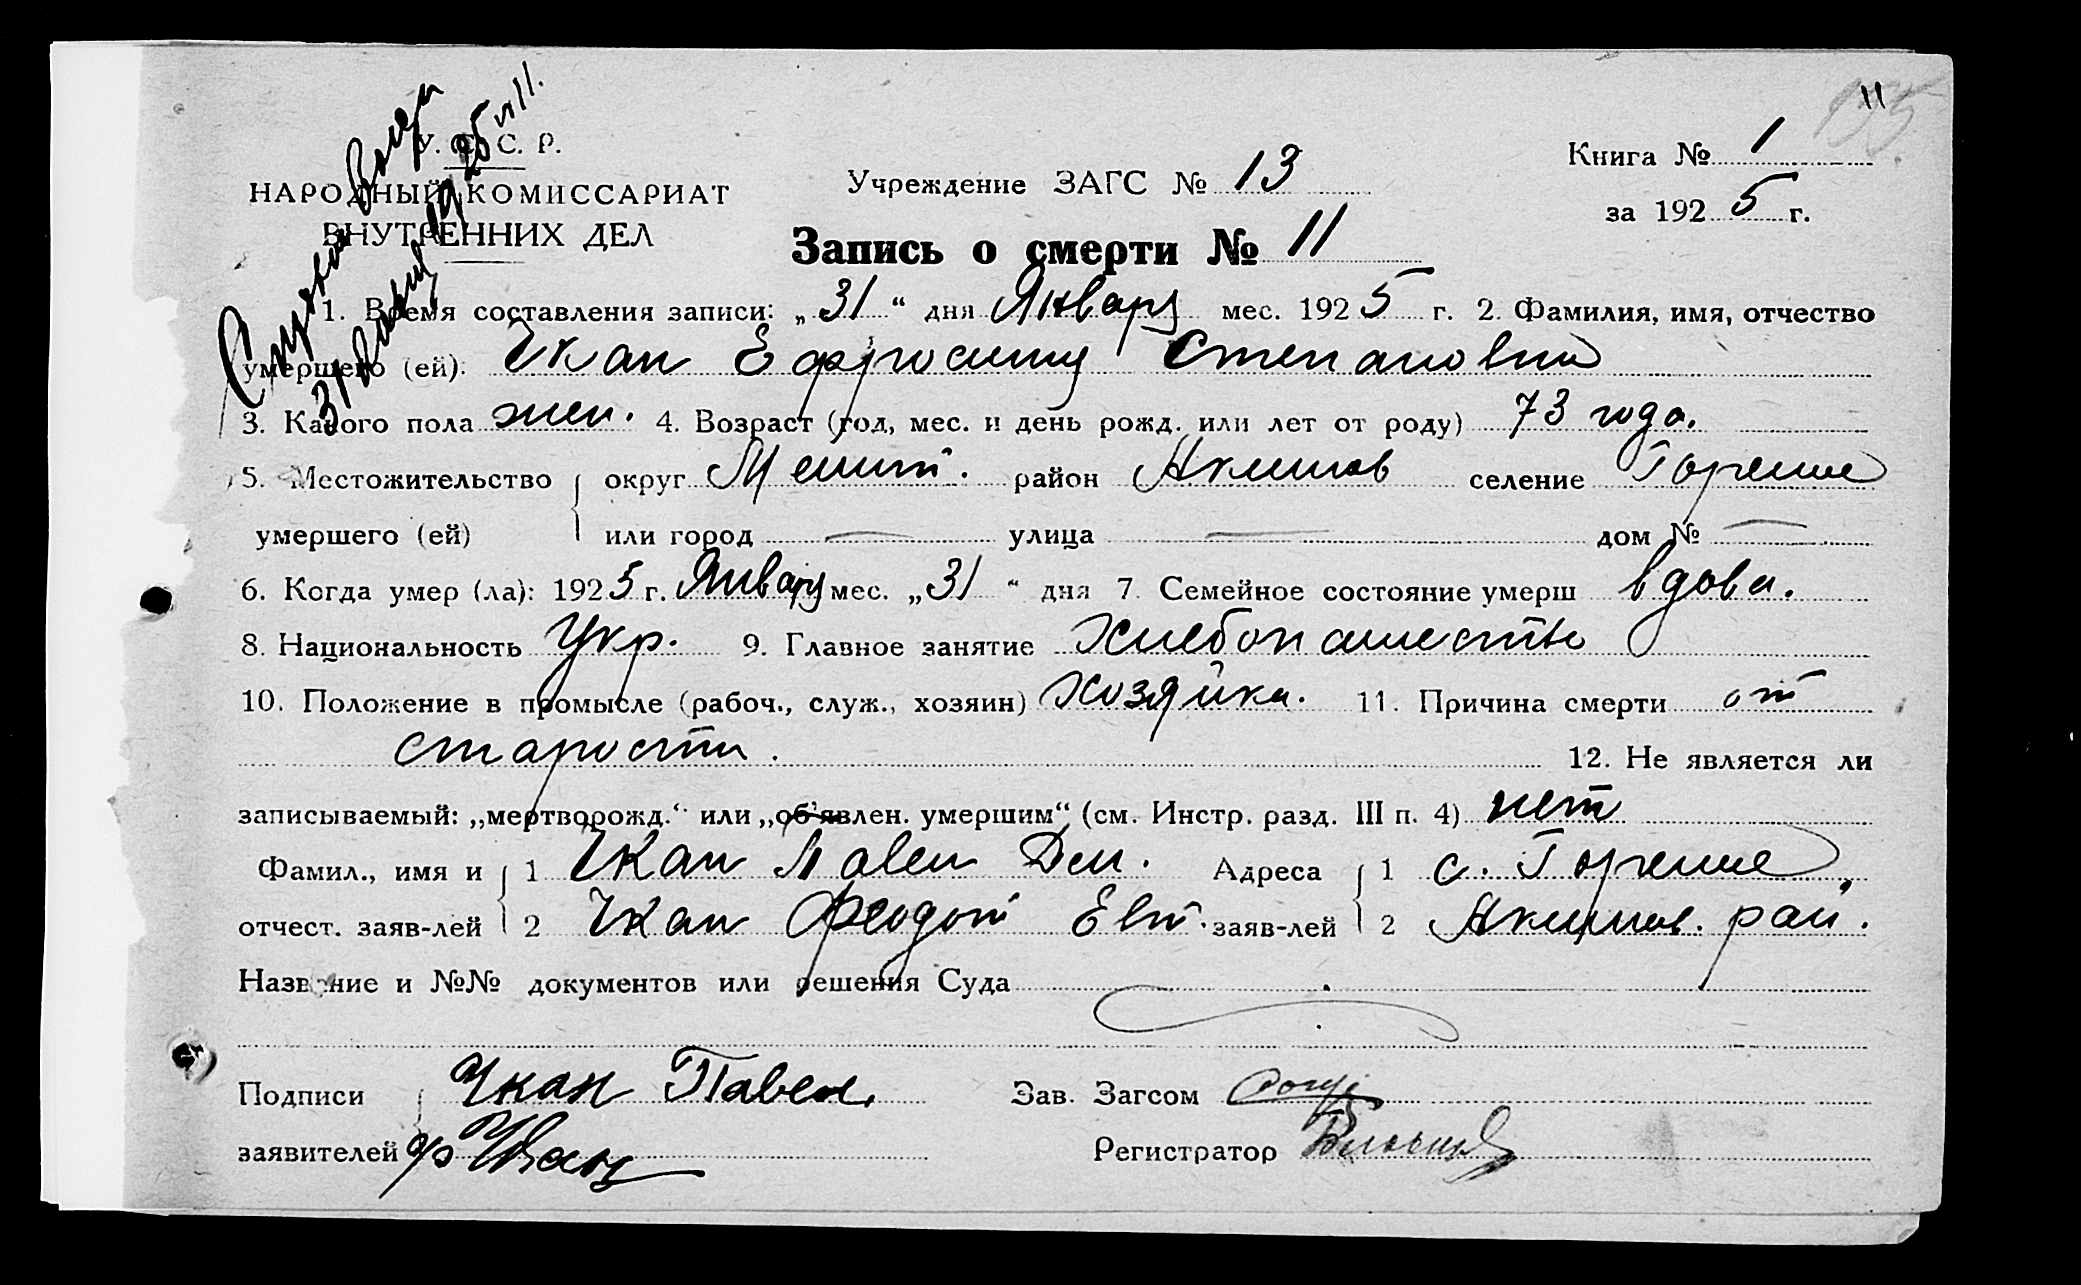 11
У. С. С. Р.
НАРОДНЫЙ КОМИССАРИАТ
ВНУТРЕННИХ ДЕЛ
Учреждение ЗАГС № 13
Книга № 1
за 1925 г.
Запись о смерти № 11
1. Время составления записи: „31“ дня Января мес. 1925 г. 2. Фамилия, имя, отчество
умершего (ей): Чкан Ефросиния Степановна
3. Какого пола жен. 4. Возраст (год, мес. и день рожд. или лет от роду) 73 года.
5. Местожительство округ Мелит. район Акимов селение Горелое
умершего (ей) или город — улица — дом № —
6. Когда умер (ла): 1925 г. Января мес. „31“ дня 7. Семейное состояние умерш вдова.
8. Национальность Укр. 9. Главное занятие Хлебопашество
10. Положение в промысле (рабоч., служ., хозяин) Хозяйка. 11. Причина смерти от
старости. 12. Не является ли
записываемый: „мертворожд.“ или „об'явлен. умершим“ (см. Инстр. разд. III п. 4) нет
Фамил., имя и 1 Чкан Павел Дем. Адреса 1 с. Горелое,
отчест. заяв-лей 2 Чкан Феодот Евт. заяв-лей 2 Акимов. рай.
Название и №№ документов или решения Суда
Подписи Чкан Павел.
Зав. Загсом
заявителей Ф Чкан
Регистратор
31 1925 №11.